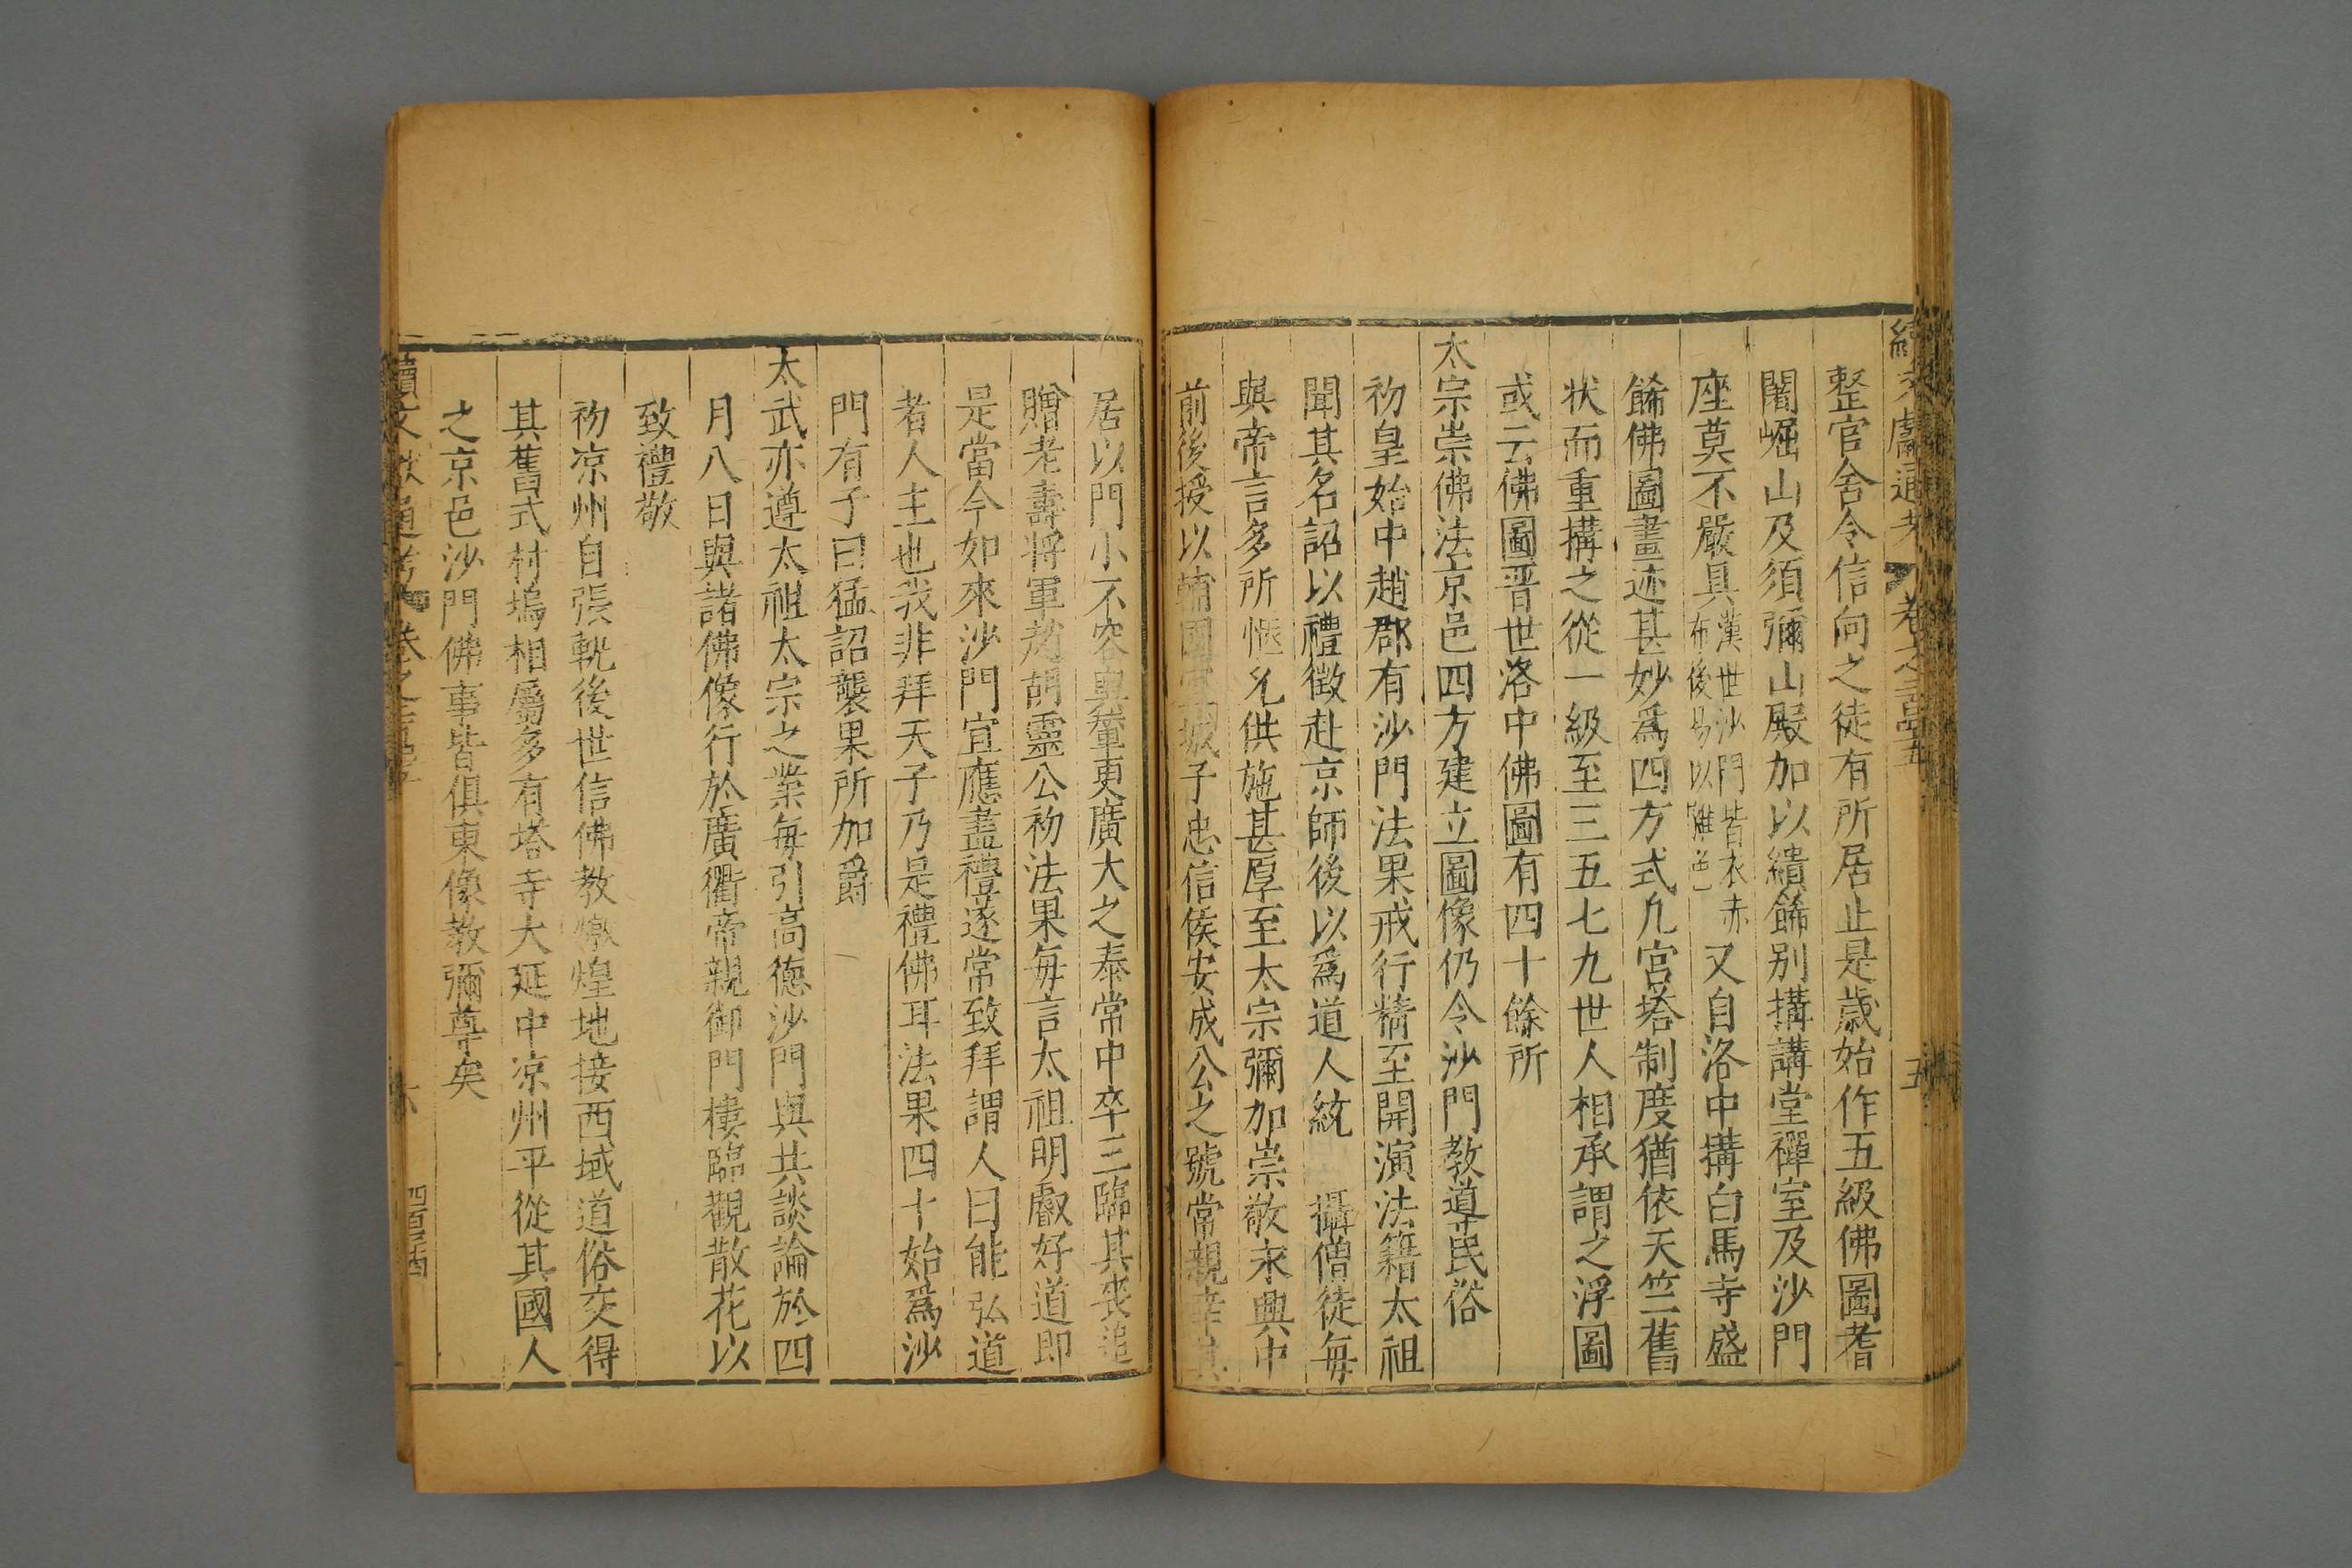 續文獻通考 卷之二百 五
整官舍令信向之徒有所居止是歲始作五級佛圖耆
闍崛山及須彌山殿加以繢餙别搆講堂禪室及沙門
座莫不嚴具漢世沙門皆衣赤布後易以雜色又自洛中搆白馬寺盛
餙佛圖畫迹甚妙爲四方式凢宮塔制度猶依天竺舊
狀而重搆之從一級至三五七九世人相承謂之浮圖
或云佛圖晋世洛中佛圖有四十餘所
太宗崇佛法京邑四方建立圖像仍令沙門教導民俗
初皇始中趙郡有沙門法果戒行精至開演法籍太祖
聞其名詔以禮徵赴京師後以爲道人統 攝僧徒毎
與帝言多所愜凢供施甚厚至太宗彌加崇敬永興中
前後授以輔國宜城子忠信侯安成公之號常親幸其
居以門小不容輿輦更廣大之泰常中卒三臨其喪追
贈老壽將軍趙胡靈公初法果毎言太祖明叡好道即
是當今如來沙門宜應盡禮遂常致拜謂人曰能弘道
者人主也我非拜天子乃是禮佛耳法果四十始爲沙
門有子曰猛詔襲果所加爵
太武亦遵太祖太宗之業毎引高德沙門與共談論於四
月八日與諸佛像行於廣衢帝親御門樓臨觀散花以
致禮敬
初凉州自張軌後世信佛教燉煌地接西域道俗交得
其舊式村塢相屬多有塔寺大延中凉州平從其國人
之京邑沙門佛事皆俱東像教彌尊矣
續文獻通考 卷之二百 六